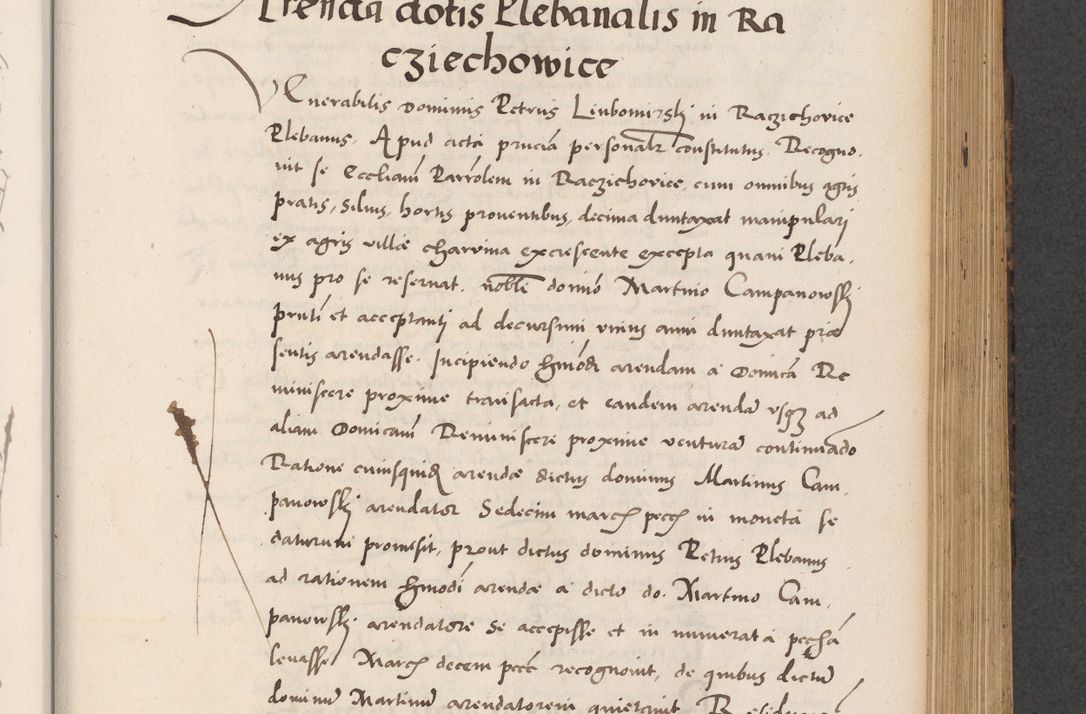 Arenda dotis Plebanalis in Ra
cziechowice
Venerabilis Dominus Petrus Liubomirskj in Raczichovice
Plebanus. Apud acta prñcia personalr constitutus, Recogno-
uit se Eccliam Parrolem in Raczichovice, cum omnibus agris
pratis, siluis, hortis prouentibus, decima duntaxat manipulari
ex agris villae charvina excrescente excepta quam Pleba-
nus pro se reseruat. noble domno Martino Campanowskj
prnti et acceptanti ad decursum vnius anni duntaxat prae
sentis arendasse. Incipiendo hmodi arendam a Domica Re
miniscere proxime transacta, et eandem arendam vsqz ad
aliam Domicam Reminiscere proxime venturam continuando
Ratione cuiusquidem arendae dictus dominus Martinus Cam-
panowskj arendator Sedecim march pecch in moneta se
daturum promisit, prout dictus dominus Petrus Plebanus
ad rationem hmodi arendae a dicto do. Martino Cam-
panowskj arendatore se accepisse et in numerata pecha
leuasse March decem pecc recognouit, de quibus dictum
dominum Martinum arendatorem quietauit